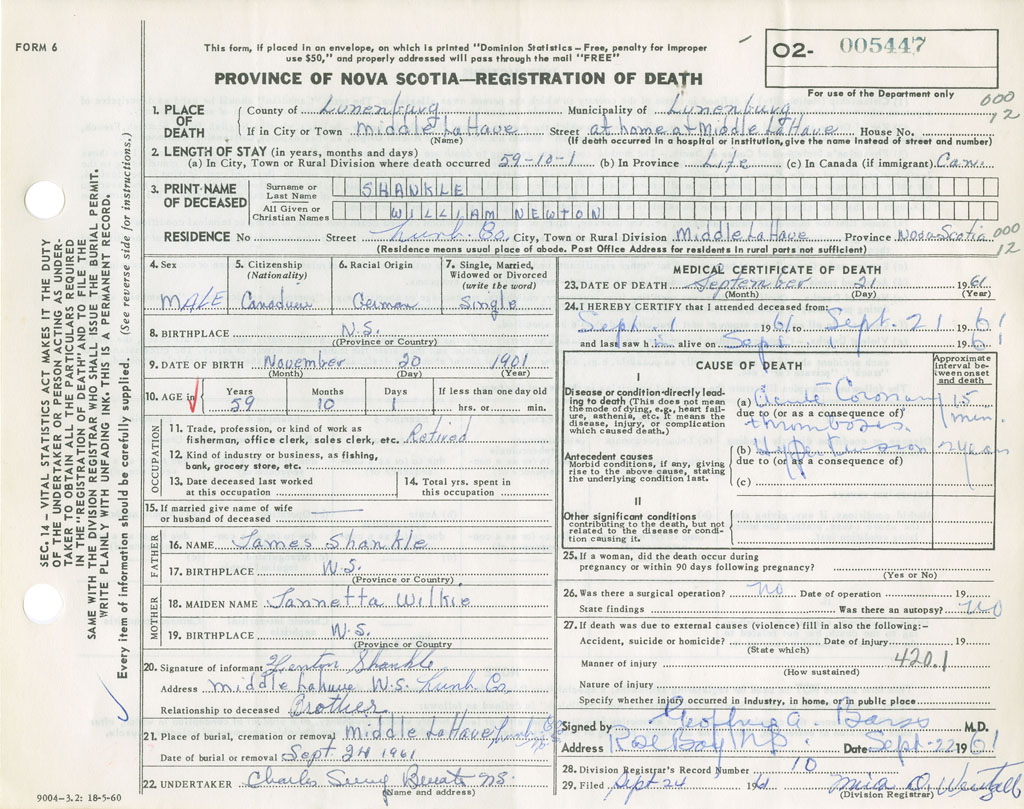 FORM 6
This form, if placed in an envelope, on which is printed "Dominion Statistics – Free, penalty for improper
use $50," and properly addressed will pass through the mail "FREE"
PROVINCE OF NOVA SCOTIA—REGISTRATION OF DEATH
02- 005447
For use of the Department only
000
12
1. PLACE OF DEATH
County of Lunenburg Municipality of Lunenburg
If in City or Town Middle LaHave Street at home at Middle LaHave House No.
(Name) (If death occurred in a hospital or institution, give the name instead of street and number)
2. LENGTH OF STAY (in years, months and days)
(a) In City, Town or Rural Division where death occurred 59-10-1 (b) In Province Life (c) In Canada (if immigrant) Can.
3. PRINT NAME OF DECEASED
Surname or Last Name SHANKLE
All Given or Christian Names WILLIAM NEWTON
RESIDENCE No Street Lunb. Co. City, Town or Rural Division Middle LaHave Province Nova Scotia
000
12
(Residence means usual place of abode. Post Office Address for residents in rural parts not sufficient)
4. Sex
MALE
5. Citizenship
(Nationality)
Canadian
6. Racial Origin
German
7. Single, Married,
Widowed or Divorced
(write the word)
Single
8. BIRTHPLACE N.S.
(Province or Country)
9. DATE OF BIRTH November 20 1901
(Month) (Day) (Year)
10. AGE in Years Months Days If less than one day old
59 10 1 hrs. or min.
OCCUPATION
11. Trade, profession, or kind of work as
fisherman, office clerk, sales clerk, etc. Retired
12. Kind of industry or business, as fishing,
bank, grocery store, etc.
13. Date deceased last worked
at this occupation
14. Total yrs. spent in
this occupation
15. If married give name of wife
or husband of deceased —
FATHER
16. NAME James Shankle
17. BIRTHPLACE N.S.
(Province or Country)
MOTHER
18. MAIDEN NAME Jannetta Wilkie
19. BIRTHPLACE N.S.
(Province or Country
20. Signature of informant Shankle
Address Middle Lahave N.S. Lunb Co.
Relationship to deceased Brother
21. Place of burial, cremation or removal Middle LaHave, Lunb Co
Date of burial or removal Sept 24 1961
22. UNDERTAKER Charles N.S.
(Name and address)
9004-3.2: 18-5-60
MEDICAL CERTIFICATE OF DEATH
23. DATE OF DEATH September 21 1961
(Month) (Day) (Year)
24. I HEREBY CERTIFY that I attended deceased from:
Sept. 1 1961 to Sept. 21 1961
and last saw him alive on Sept. 1 1961
CAUSE OF DEATH
Approximate
interval between
onset
and death
I
Disease or condition directly leading
to death (This does not mean
the mode of dying, e.g., heart failure,
asthenia, etc. It means the
disease, injury, or complication
which caused death.)
(a) Acute Coronary 15 min
due to (or as a consequence of)
thrombosis.
Antecedent causes
Morbid conditions, if any, giving
rise to the above cause, stating
the underlying condition last.
(b) Hypertension 2 years
due to (or as a consequence of)
(c)
II
Other significant conditions
contributing to the death, but not
related to the disease or condition
causing it.
25. If a woman, did the death occur during
pregnancy or within 90 days following pregnancy?
(Yes or No)
26. Was there a surgical operation? no Date of operation 19
State findings Was there an autopsy? no
27. If death was due to external causes (violence) fill in also the following:–
Accident, suicide or homicide? Date of injury 19
(State which)
Manner of injury 420.1
(How sustained)
Nature of injury
Specify whether injury occurred in industry, in home, or in public place
Signed by A. M.D.
Address Rose Bay N.S. Date Sept-22 1961
28. Division Registrar's Record Number 10
29. Filed Sept 24 1961
(Division Registrar)
SEC. 14 – VITAL STATISTICS ACT MAKES IT THE DUTY
OF THE UNDERTAKER OR PERSON ACTING AS UNDERTAKER
TO OBTAIN ALL THE PARTICULARS REQUIRED
IN THE "REGISTRATION OF DEATH" AND TO FILE THE
SAME WITH THE DIVISION REGISTRAR WHO SHALL ISSUE THE BURIAL PERMIT.
WRITE PLAINLY WITH UNFADING INK. THIS IS A PERMANENT RECORD.
Every item of information should be carefully supplied. (See reverse side for instructions.)